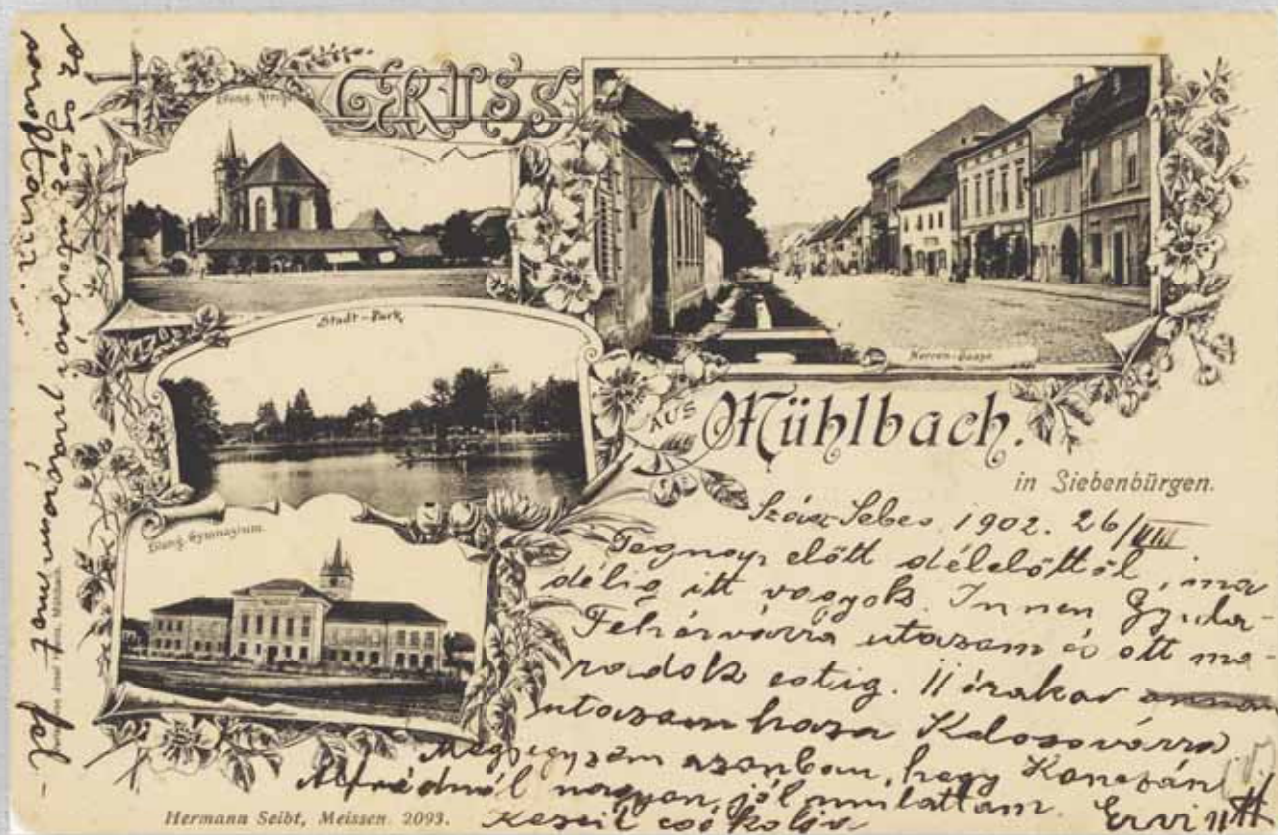 GRUSS
Evang. Kirche
Stadt-Park
Evang. Gymnasium.
Herren-Gasse
AUS
Mühlbach.
in Siebenbürgen.
Szász-Sebes 1902. 26/VIII
Tegnap előtt délelőttől, ma
délig itt vagyok. Innen Gyula-
Fehérvárra utazom és ott ma-
radok estig. 11 órakor
utazom haza Kolozsvárra
Megjegyzem azonban, hogy
Alfrédnál nagyon jól mulattam.
Kezeit csókolja Ervin
az igazat
Hermann Seibt, Meissen. 2093.